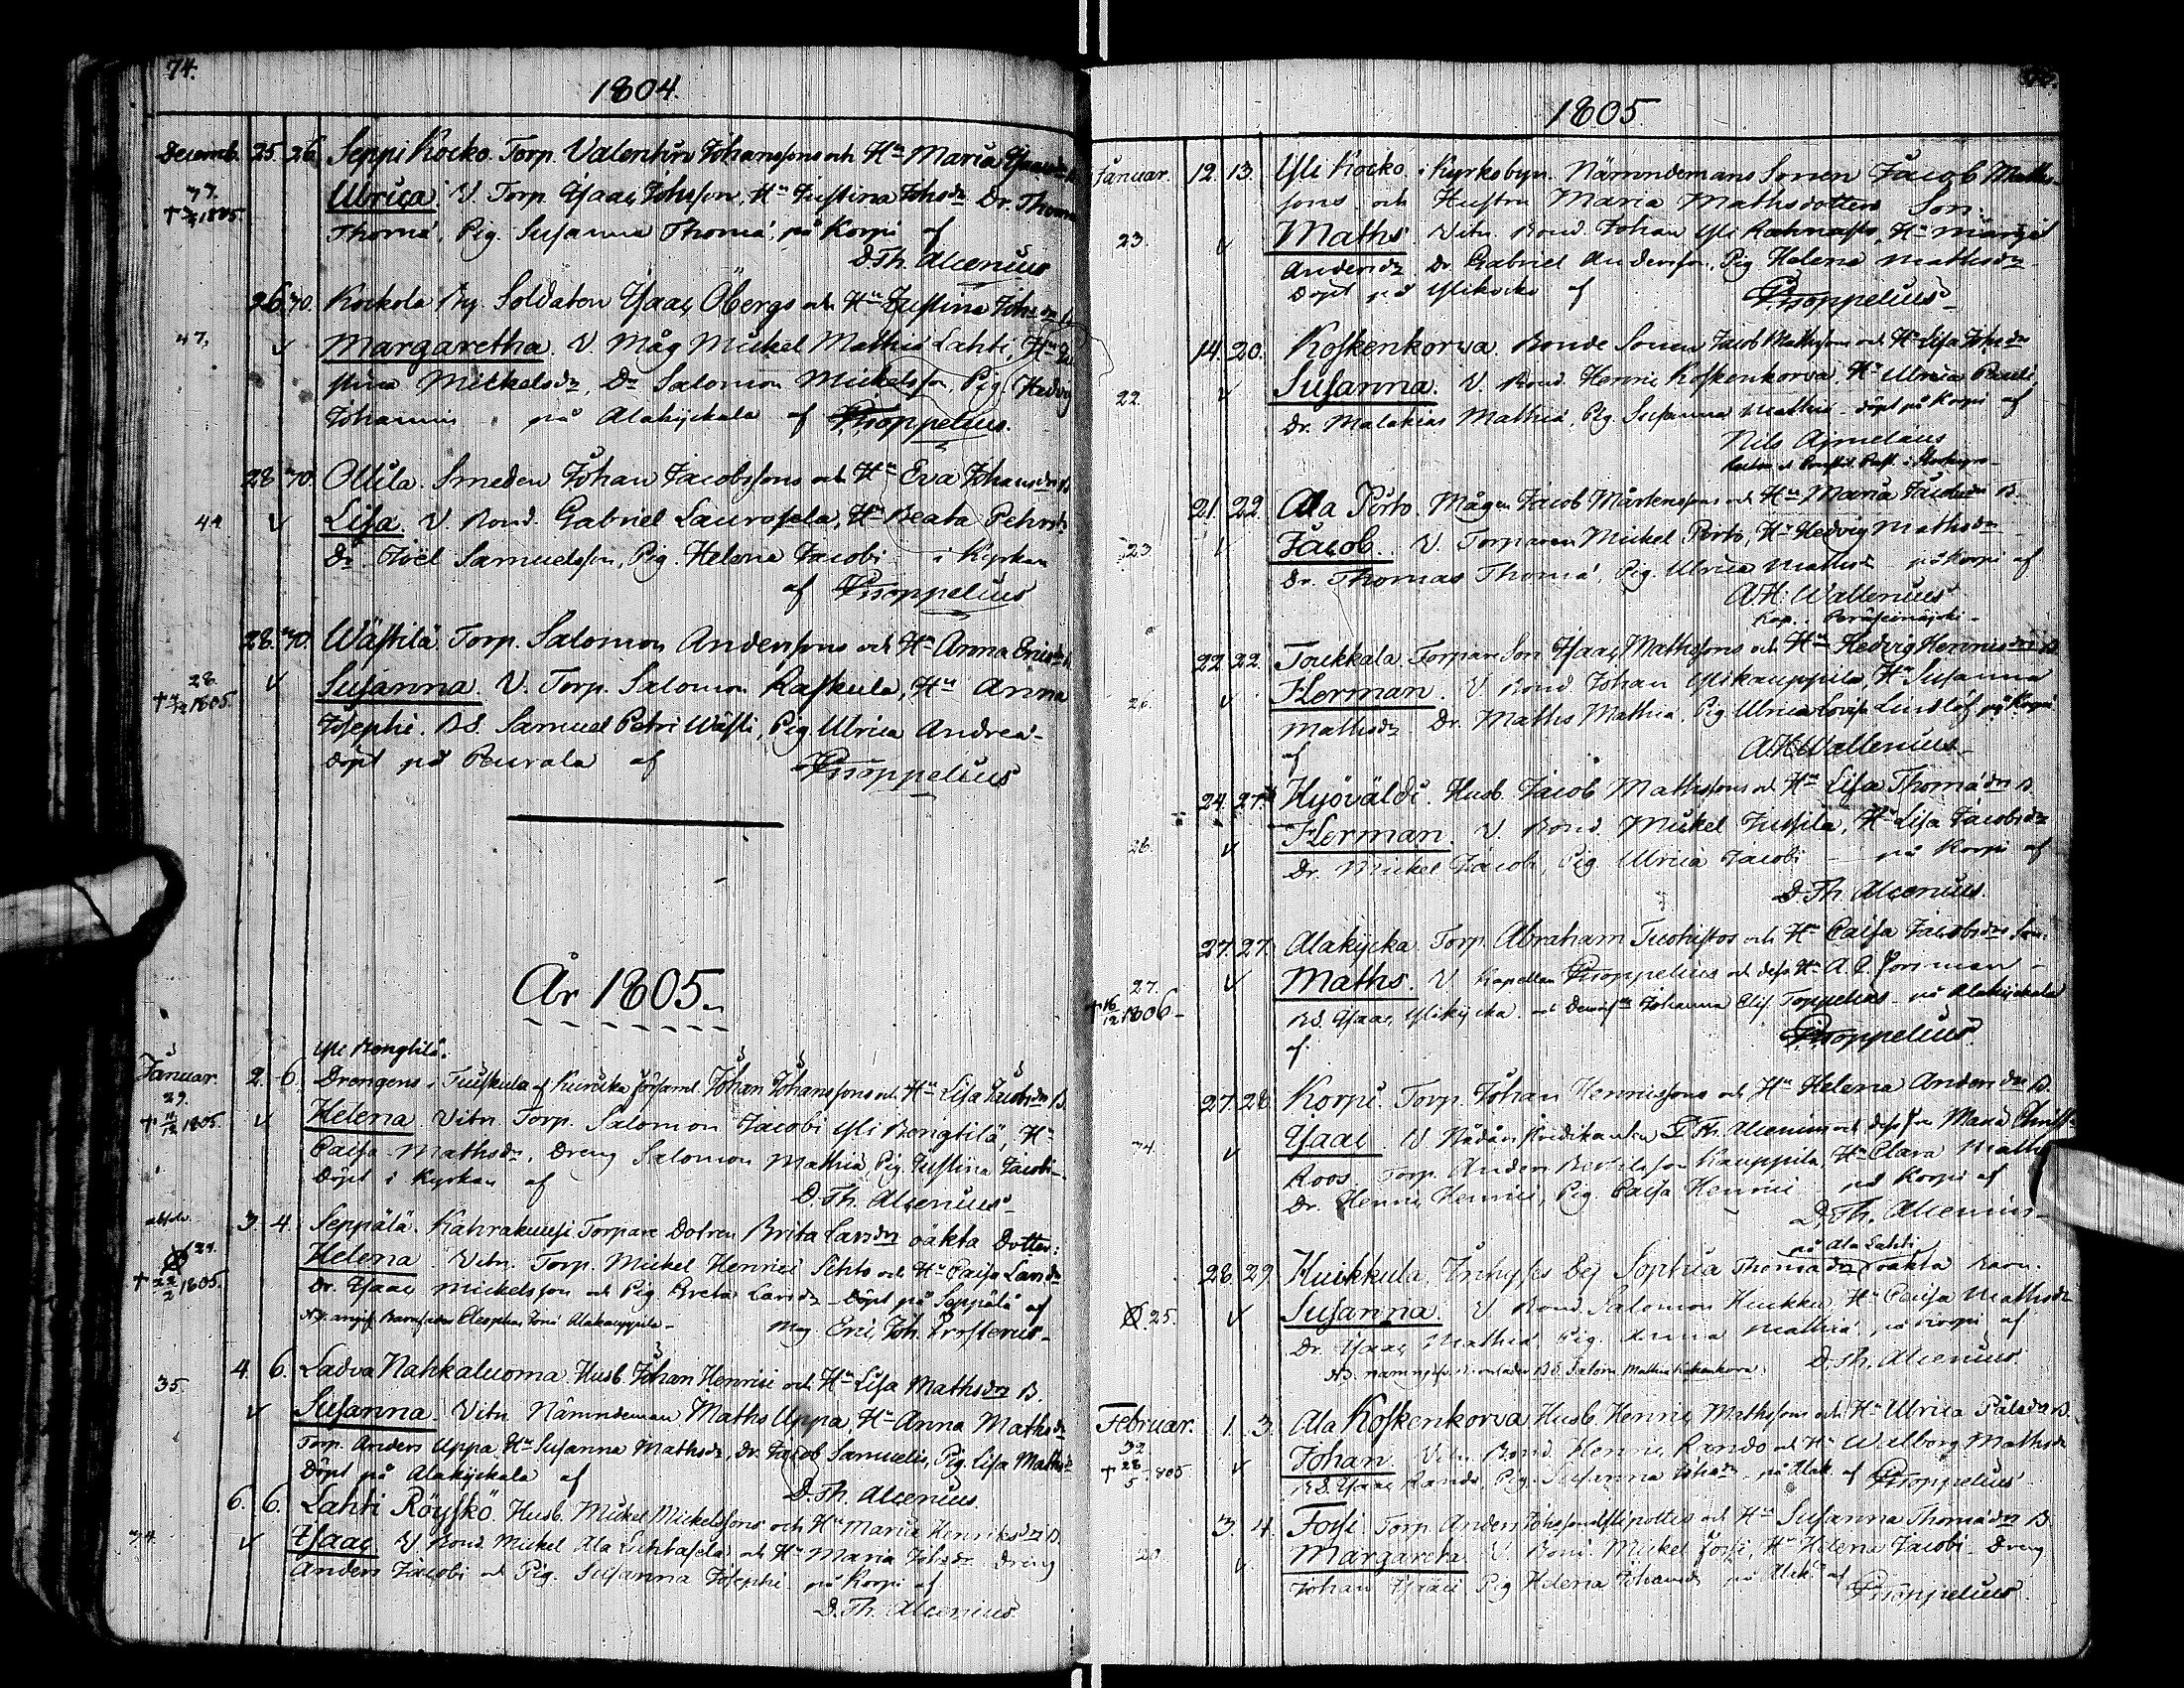 74.
1804.
Decemb. 25. 26. Seppi Kocko. Torp. Valentin Johanssons och Hu Maria
† 1805. Ulrica. V. Torp. Isaac Johsson, Hu Justina Johsdr Dr. Thomas
Thomæ, Pig. Susanna Thomæ, på Korpi af
D. Th. Alcenius
26. 30. Kockola By. Soldaten Isaac Öbergs och Hu Justina Johsdr
47. v Margaretha. V. Måg Mickel Mathiæ Lahti, Hu Ju
stina Mickelsdr, Dr Salomon Mickelsson, Pig. Hedvig
Johannis på Alakyckala af Toppelius.
28. 30. Ollila. Smeden Johan Jacobssons och Hu Eva Johansdrs B.
v Lisa. V. Bond. Gabriel Laurosela, Hu Beata Pehrsdr
Dr. Joël Samuelsson, Pig. Helena Jacobi i Kyrkan
af Toppelius
28. 30. Wästilä Torp. Salomon Anderssons och Hu Anna Ericsdr
28. v Susanna. V. Torp. Salomon Raskula, Hu Anna
† 1805.
Josephi. BS. Samuel Petri Wästi, Pig Ulrica Andreæ
döpt på Rurala af Toppelius
År 1805.
Yli Bengtilä.
Januar. 2. 6. Drengens i Tuiskula af Kuricka församl. Johan Johanssons och Hu Lisa Jacobsdrs B.
29.
† 11/12 1805. v Helena. Vitn. Torp. Salomon Jacobi Yli Bengtilä, Hu
Caisa Mathsdr, Dreng Salomon Mathiæ, Pig. Justina Jacobi
Döpt i Kyrkan af
D. Th. Alcenius
3. 4. Seppälä. Kahrakuusi Torpare Dotren Brita Larsdrs oäkta Dotter:
24. Helena. Vitn. Torp. Mickel Henrici Sihto och Hu Caisa Larsdr
† 22/2 1805. Dr. Isaac Mickelsson och Pig. Greta Larsdr Döpt på Seppälä af
Mag. Eric Joh.
4. 6. Ladva Nahkaluoma. Husb. Johan Henrici och Hu Lisa Mathsdrs B.
35. v Susanna. Vitn. Nämndeman Maths Uppa, Hu Anna Mathsdr
Torp. Anders Uppa Hu Susanna Mathsdr, Dr. Jacob Samuelis, Pig. Lisa Mathsdr
Döpt på Alakyckala af
D. Th. Alcenius.
6. 6. Lahti Röyskö. Husb. Mickel Mickelssons och Hu Maria Henriksdrs B.
v Isaac. V. Bond. Mickel Ala Luhtasela och Hu Maria Johsdr Dreng
Anders Jacobi och Pig. Susanna Josephi på Korpi af
D. Th. Alcenius
1805
Januar. 12. 13. Yli Kocko i Kyrkobyn. Nämndemans Sonen Jacob Maths-
sons och Hustru Maria Mathsdotters Son:
23. v Maths. Vitn. Bond. Johan Yli Rahnasto, Hu
Andersdr Dr Gabriel Andersson, Pig. Helena Mathsdr
Döpt på Ylikocko af Toppelius
14. 20. Koskenkorva. Bonde Sonen Jacob Mathssons och Hu Lisa Johsdr
22. v Susanna. V. Bond. Henric Koskenkorva, Hu Ulrica Pauli,
Dr. Malakias Mathiæ, Pig. Susanna Mathiæ döpt på Korpi af
Nils Ajmelæus
21. 22. Ala Pörto. Mågen Jacob Mårtenssons och Hu Maria Jacobsdrs B.
23 v Jacob. V. Torparen Mickel Pörto, Hu Hedvig Mathsdr
Dr. Thomas Thomæ, Pig. Ulrica Mathsdr på Korpi af
A. H. Wallenius
Kap. i Peräseinäjoki
22. 22. Toukkala Torpare Son Isaac Mathssons och Hu Hedvig Henricsdrs B.
26. v Herman. V. Bond. Johan Ylikauppila, Hu Susanna
Mathsdr Dr. Maths Mathiæ, Pig Ulrica Lovisa Lindlöf på Korpi
af A. H. Wallenius
24. 27. Hyöväldi. Husb. Jacob Mathssons och Hu Lisa Thomædrs B.
26. v Herman. V. Bond. Mickel Jussila, Hu Lisa Jacobsdr
Dr. Mickel Jacobi, Pig Ulrica Jacobi på Korpi af
D. Th. Alcenius.
27. 27. Alakycka Torp. Abraham Tuohistos och Hu Caisa Jacobsdrs Son.
27. v Maths. V. Kapellan Toppelius och dess Hu A. C. Forsman
† 16/12 1806 BS. Isaac Ylikycka och Demoislle Johanna Elis. Toppelius på Alakyckala
af Toppelius
27. 28. Korpi. Torp. Johan Henricssons och Hu Helena Andersdrs B.
v Isaac. V. Nådårs Predikanten D. Th. Alcenius och dess Fru Maria Christ.
Roos, Torp. Anders Kauppila, Hu Clara Mathsdr
Dr. Henric Henrici, Pig. Caisa Henrici på Korpi af
D. Th. Alcenius
på Ala Lahti
28. 29. Huikkula, Inhyses Pig Sophia Thomædrs oäkta Barn.
25. v Susanna V. Bond. Salomon Huikku, Hu Caisa Mathsdr
Dr. Isaac Mathiæ, Pig. Anna Mathiæ på Korpi af
D. Th. Alcenius
Februar. 1. 3. Ala Koskenkorva Husb. Henric Mathssons och Hu Ulrica Pålsdrs B.
32. v Johan. Vitn. Bond. Henric Rando och Hu Walborg Mathsdr
† 28/5 1805 BS. Isaac Rando, Pig. Susanna Johsdr på Alak. af Toppelius
3. 4. Forsi. Torp. Anders Johssons och Hu Susanna Thomædrs B.
v Margareta V. Bond. Mickel Forsi, Hu Helena Jacobi Dreng
Johan Isaaci Pig Helena Johansdr på Alak. af
Toppelius